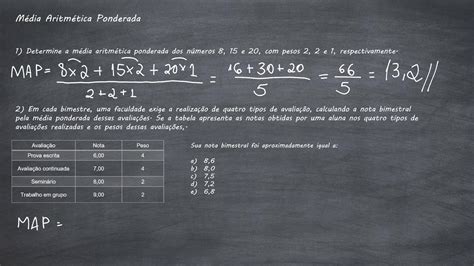 Média Aritmética Ponderada
1) Determine a média aritmética ponderada dos números 8, 15 e 20, com pesos 2, 2 e 1, respectivamente.
MAP = 8x2 + 15x2 + 20x1 / 2+2+1 = 16+30+20 / 5 = 66 / 5 = 13,2 //
2) Em cada bimestre, uma faculdade exige a realização de quatro tipos de avaliação, calculando a nota bimestral
pela média ponderada dessas avaliações. Se a tabela apresenta as notas obtidas por uma aluna nos quatro tipos de
avaliações realizadas e os pesos dessas avaliações,
Avaliação Nota Peso
Prova escrita 6,00 4
Avaliação continuada 7,00 4
Seminário 8,00 2
Trabalho em grupo 9,00 2
Sua nota bimestral foi aproximadamente igual a:
a) 8,6
b) 8,0
c) 7,5
d) 7,2
e) 6,8
MAP =